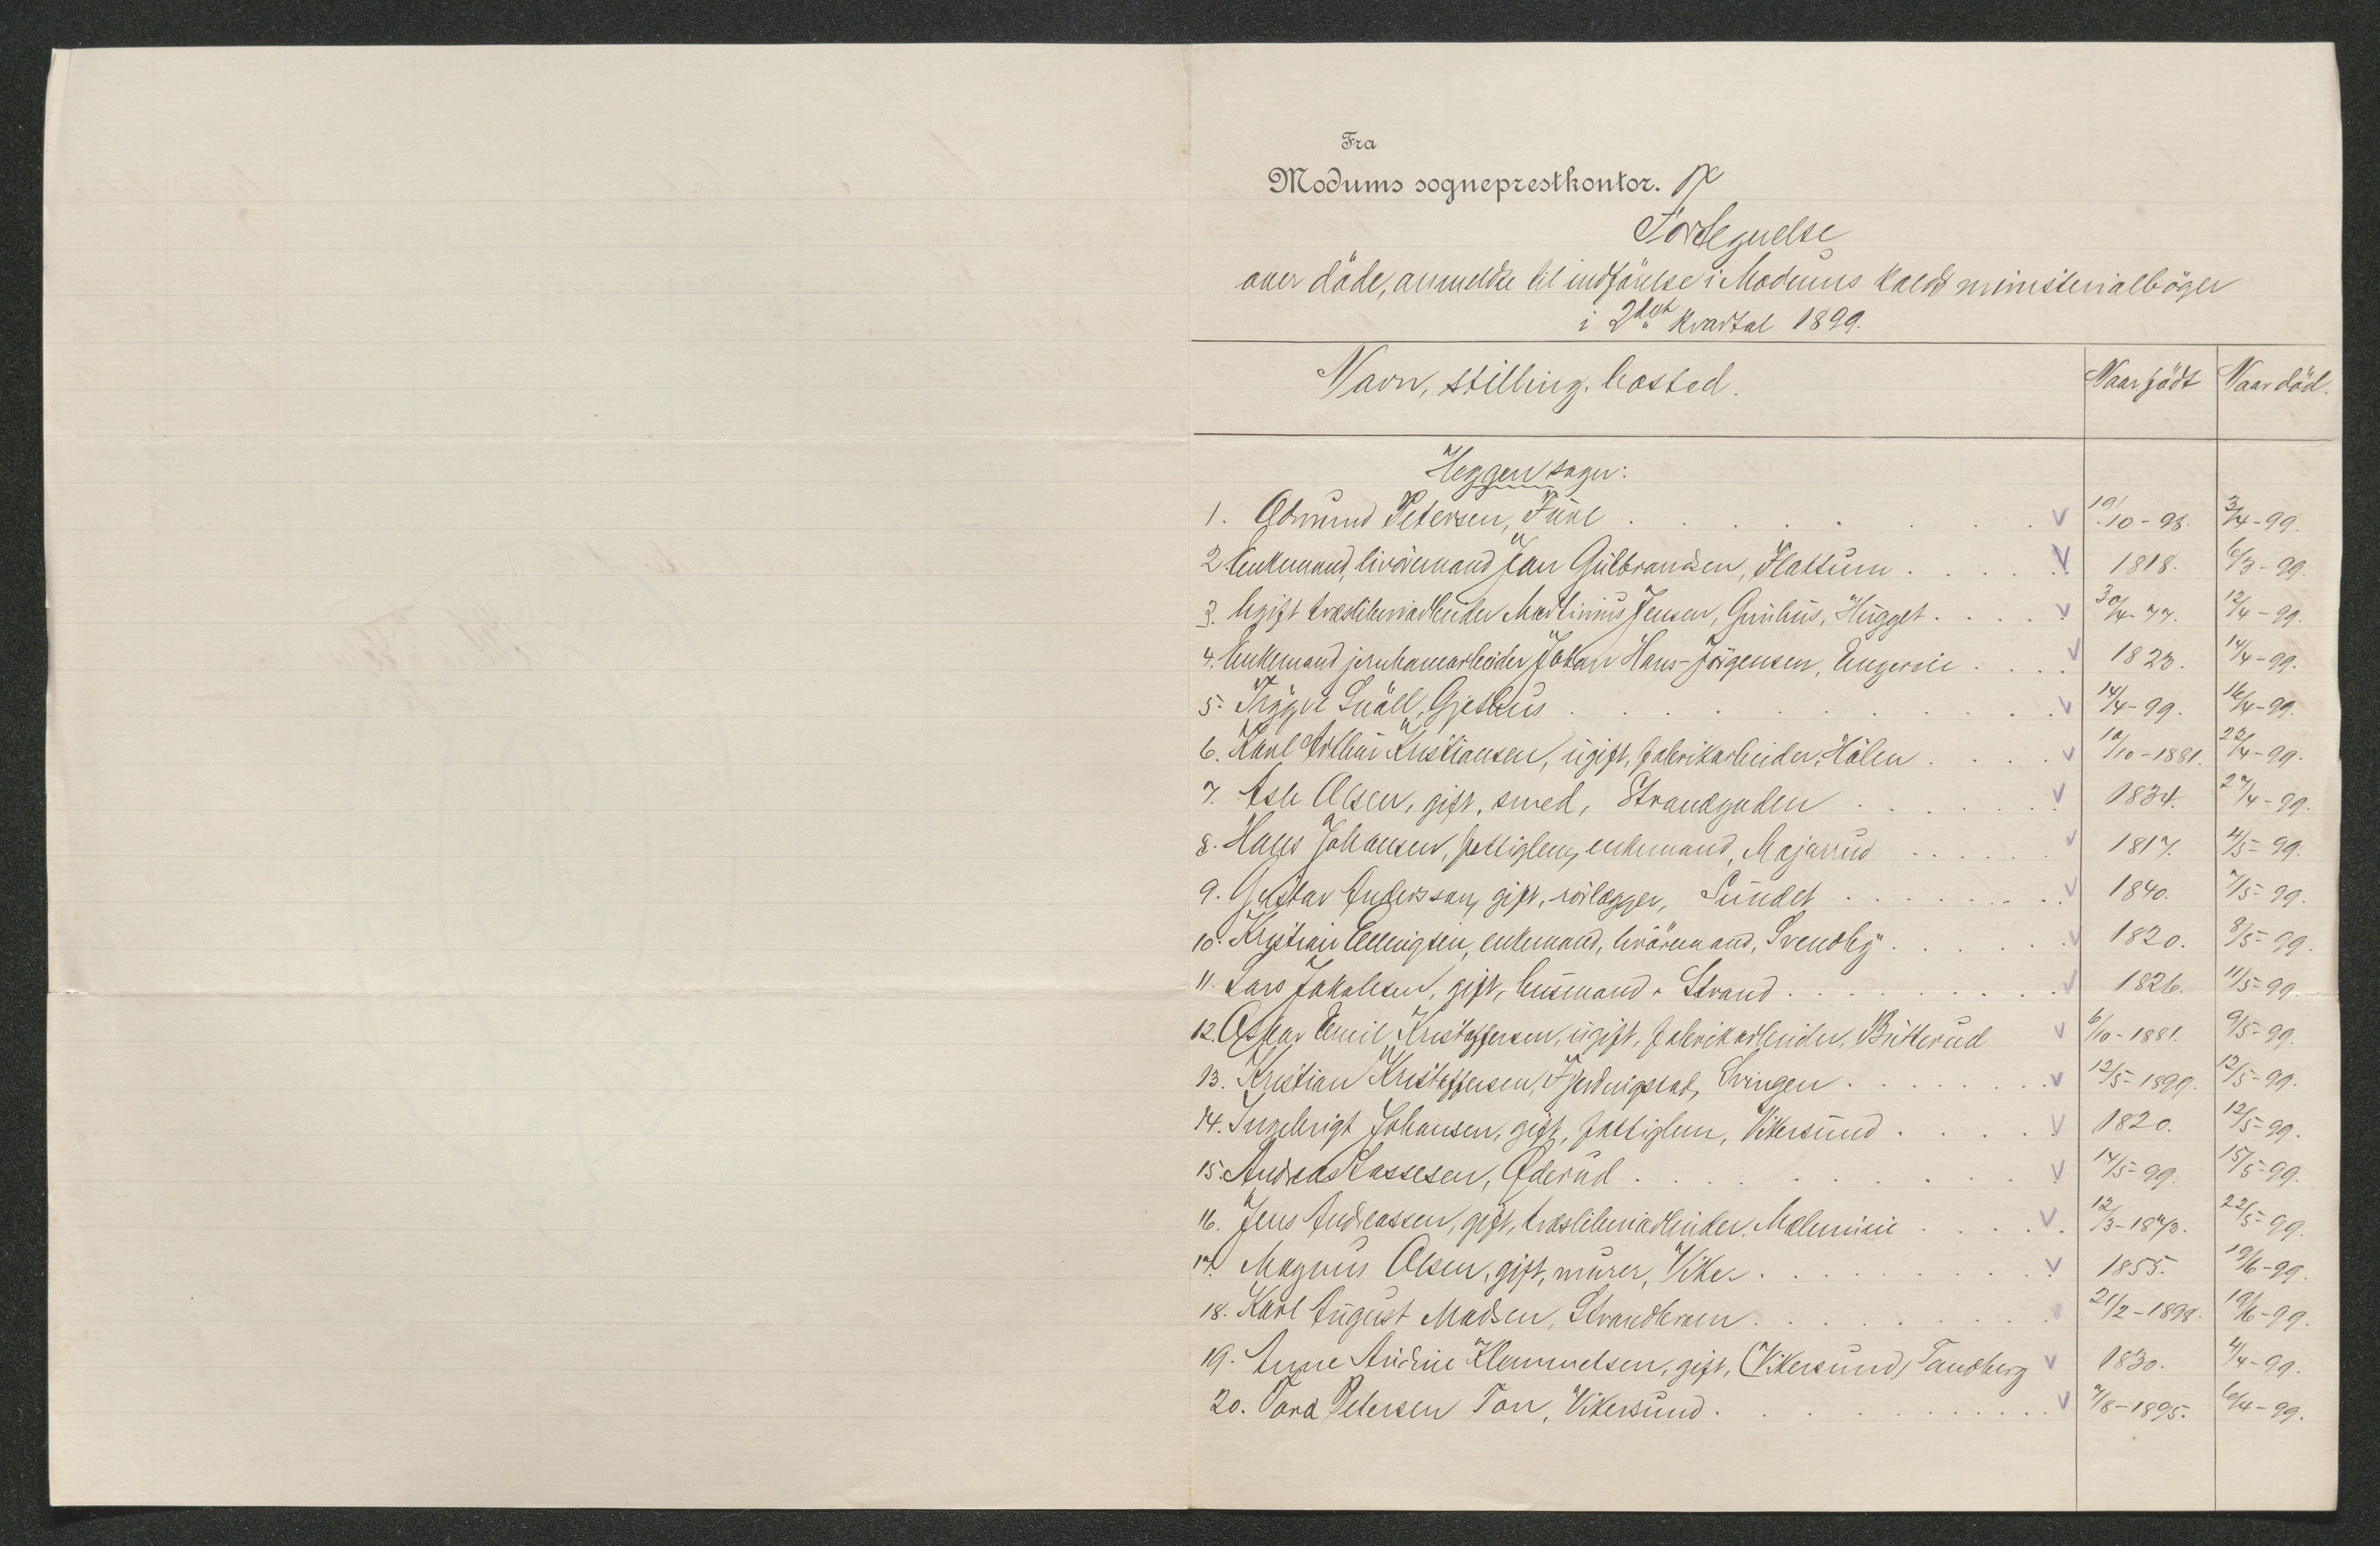 Fra
Modums sogneprestkontor.
Fortegnelse
over döde, anmeldte til indförelse i Modums kalds ministerialböger
i 2det kvartal 1899.
Navn, stilling, bosted. Naar födt Naar död.
Heggen sogn:
1. Edmund Petersen, Fure 19/10-98. 3/4-99.
2. Enkemand, livöremand Jan Gulbrandsen, Flattum 1818. 6/3-99.
3. Ugift træsliberiarbeider Martinius Jensen, Grinhus, Hugget 30/4-77. 12/4-99.
4. Enkemand jernbanearbeider Johan Hans-Jörgensen, Engereie 1823. 14/4-99.
5. Trygve Snäll, Gjethus 14/4-99. 16/4-99.
6. Karl Arthur Kristiansen, ugift, fabrikarbeider, Hölen 10/10-1881. 22/4-99.
7. Asle Olsen, gift, smed, Strandgaden 1834. 27/4-99.
8. Hans Johansen, fattiglem, enkemand, Majarrud 1817. 4/5-99.
9. Gustav Andersson, gift, rörlægger, Sundet 1840. 7/5-99.
10. Kristian Ellingsen, enkemand, livöremand, Svendby 1820. 8/5-99.
11. Lars Jakobsen, gift, husmand, Strand 1826. 11/5-99.
12. Oskar Emil Kristoffersen, ugift, fabrikarbeider, Butterud 6/10-1881. 9/5-99.
13. Kristian Kristoffersen, Fjerdingstad, Svingen 12/5-1899. 12/5-99.
14. Ingebrigt Johansen, gift, fattiglem, Vikersund 1820. 12/5-99.
15. Andreas Lassesen, Öderud 14/5-99. 15/5-99.
16. Jens Andreassen, gift, træsliberiarbeider, 12/3-1873. 22/5-99.
17. Magnus Olsen, gift, murer, Viker 1855. 19/6-99.
18. Karl August Madsen, Strandbraen 21/2-1898. 19/6-99.
19. Anne Andrine Klemmetsen, gift, (Vikersund) Tandberg 1830. 4/4-99.
20. Tora Petersen Ton, Vikersund 7/8-1895. 6/4-99.